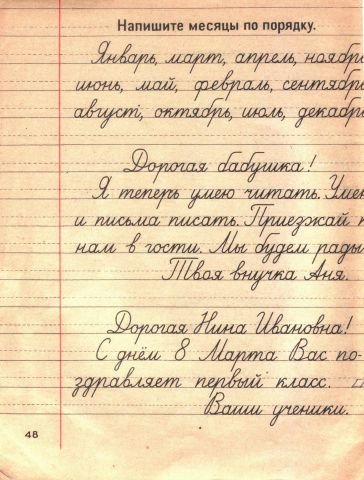 Напишите месяцы по порядку.
Январь, март, апрель, ноябрь
июнь, май, февраль, сентябрь
август, октябрь, июль, декабрь
Дорогая бабушка!
Я теперь умею читать. Умею
и письма писать. Приезжай к
нам в гости. Мы будем рады
Твоя внучка Аня.
Дорогая Нина Ивановна!
С днём 8 Марта Вас по-
здравляет первый класс.
Ваши ученики.
48